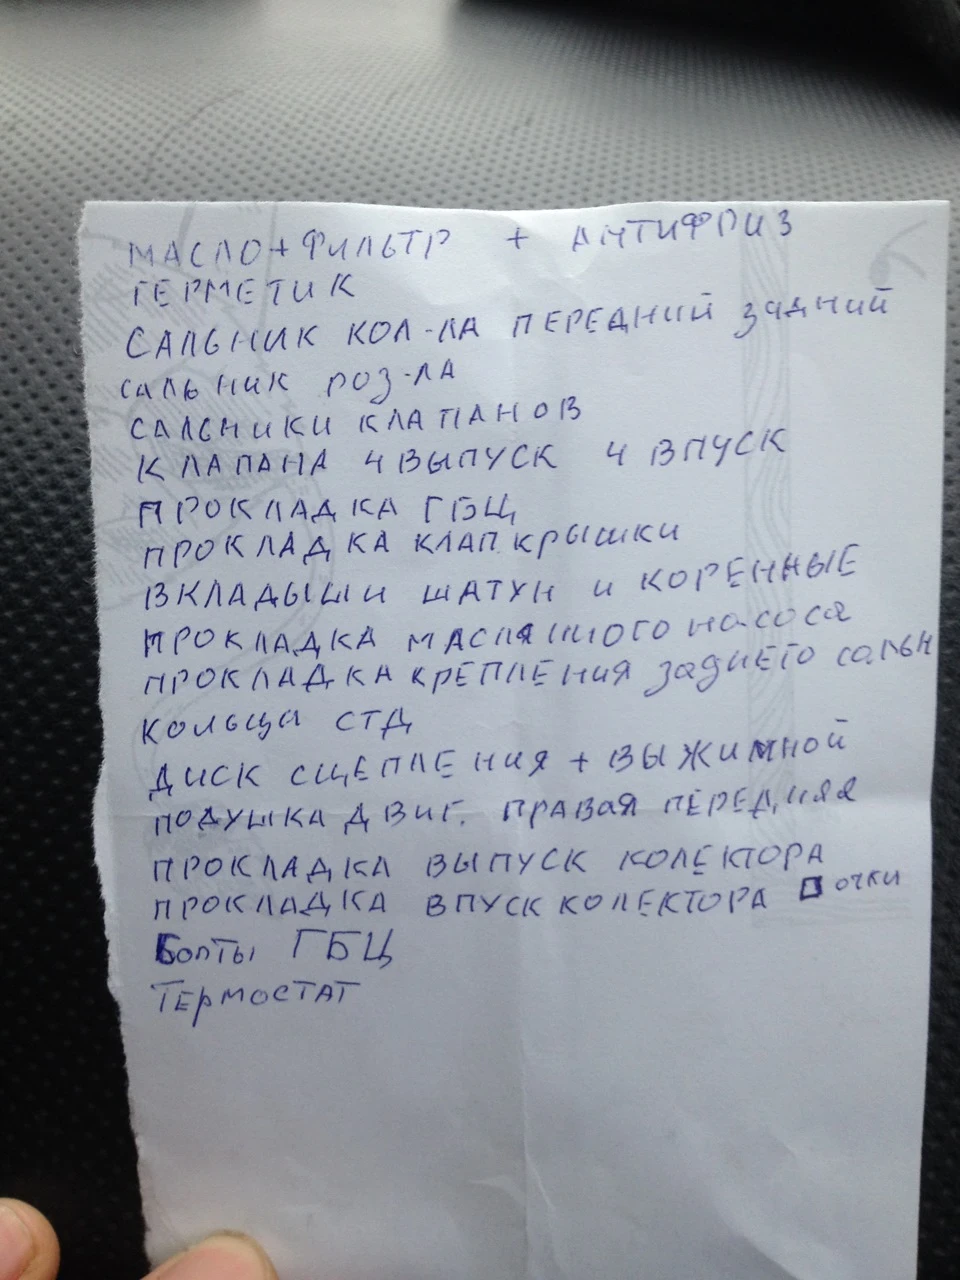 МАСЛО+ФИЛЬТР + АНТИФРИЗ
ГЕРМЕТИК
САЛЬНИК КОЛ-ЛА ПЕРЕДНИЙ ЗАДНИЙ
САЛЬНИК РОЗ-ЛА
САЛЬНИКИ КЛАПАНОВ
КЛАПАНА 4 ВЫПУСК 4 ВПУСК
ПРОКЛАДКА ГБЦ
ПРОКЛАДКА КЛАП КРЫШКИ
ВКЛАДЫШИ ШАТУН И КОРЕННЫЕ
ПРОКЛАДКА МАСЛЯННОГО НАСОСА
ПРОКЛАДКА КРЕПЛЕНИЯ ЗАДНЕГО САЛЬН
КОЛЬЦА СТД
ДИСК СЦЕПЛЕНИЯ + ВЫЖИМНОЙ
ПОДУШКА ДВИГ. ПРАВАЯ ПЕРЕДНЯЯ
ПРОКЛАДКА ВЫПУСК КОЛЕКТОРА
ПРОКЛАДКА ВПУСК КОЛЕКТОРА ОЧКИ
БОЛТЫ ГБЦ
ТЕРМОСТАТ